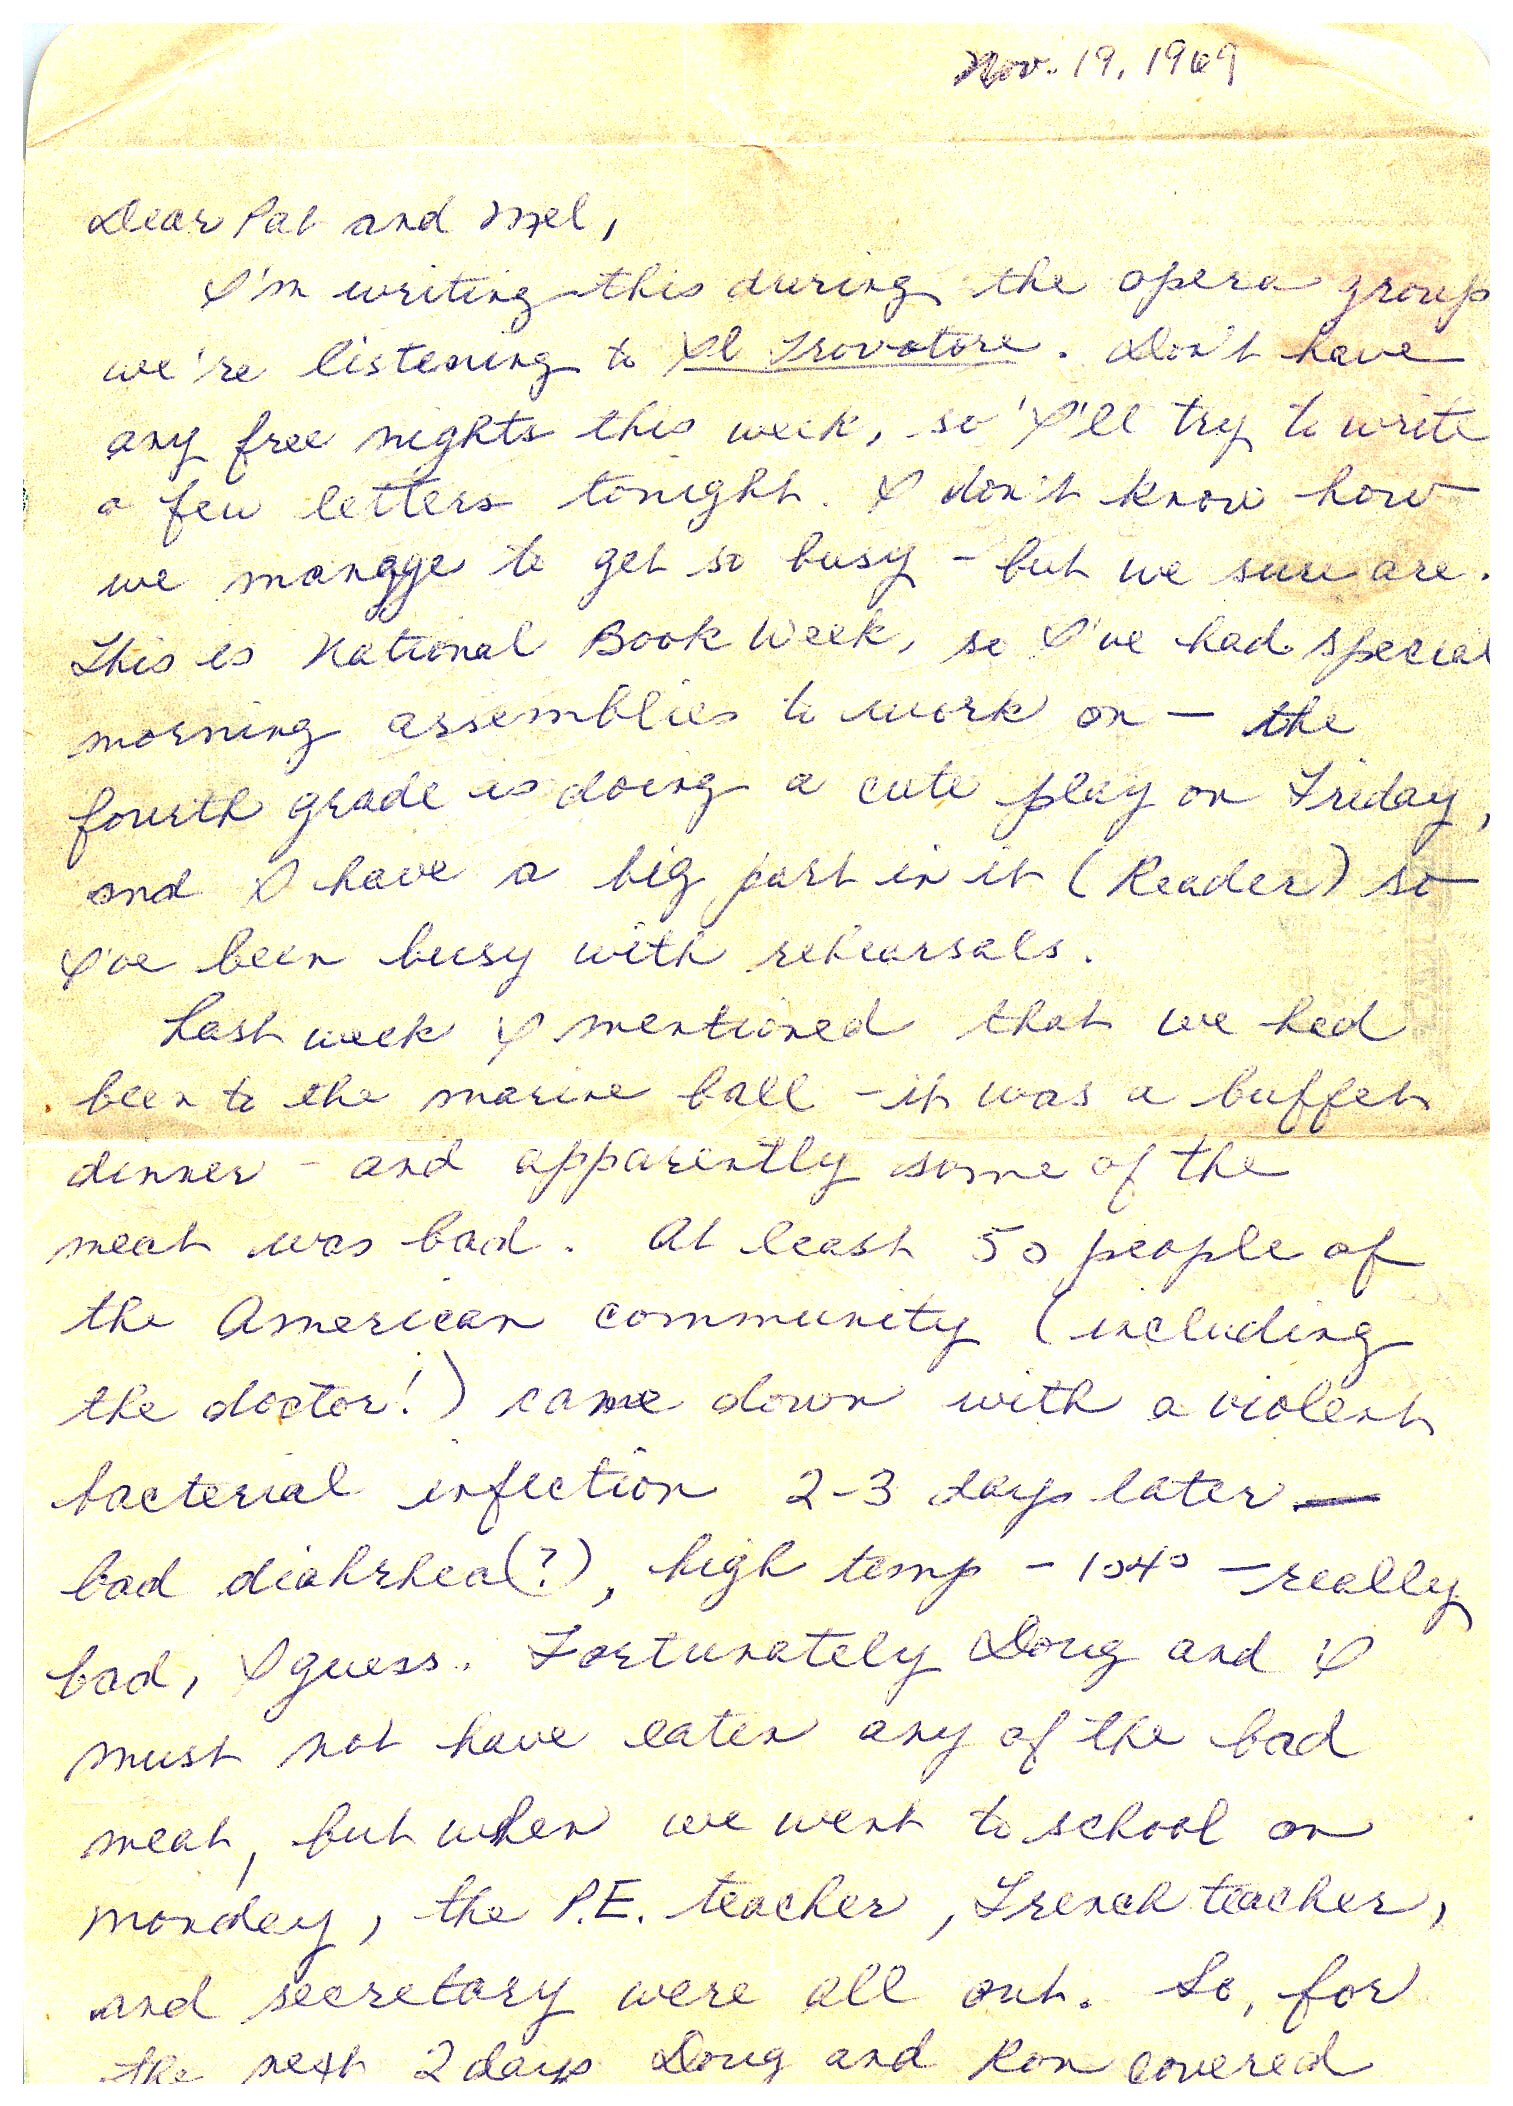 Nov. 19, 1969
Dear Pat and Mel,
I'm writing this during the opera group
we're listening to Il Trovatore. Don't have
any free nights this week, so I'll try to write
a few letters tonight. I don't know how
we manage to get so busy - but we sure are.
This is National Book Week, so I've had special
morning assemblies to work on — the
fourth grade is doing a cute play on Friday,
and I have a big part in it (Reader) so
I've been busy with rehearsals.
Last week I mentioned that we had
been to the marine ball - it was a buffet
dinner - and apparently some of the
meat was bad. At least 50 people of
the American community (including
the doctor!) came down with a violent
bacterial infection 2-3 days later —
bad diahrhea(?), high temp - 104° - really
bad, I guess. Fortunately Doug and I
must not have eaten any of the bad
meat, but when we went to school on
Monday, the P.E. teacher, French teacher,
and secretary were all out. So, for
the next 2 days Doug and Ron covered